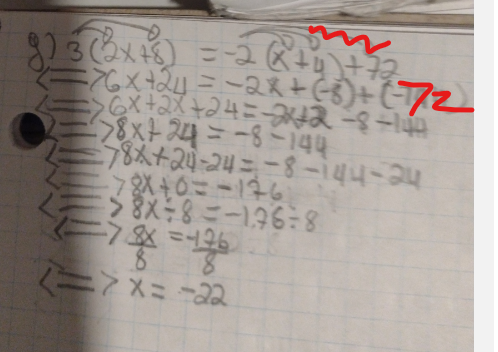 g) 3(2x+8) = -2(x+4)+72
<=> 6x+24 = -2x+(-8)+(-72
<=> 6x+2x+24 = -2x+2 -8 -144
<=> 8x+24 = -8-144
<=> 8x+24-24 = -8-144-24
<=> 8x+0 = -176
<=> 8x÷8 = -176÷8
<=> 8x/8 = -176/8
<=> x = -22